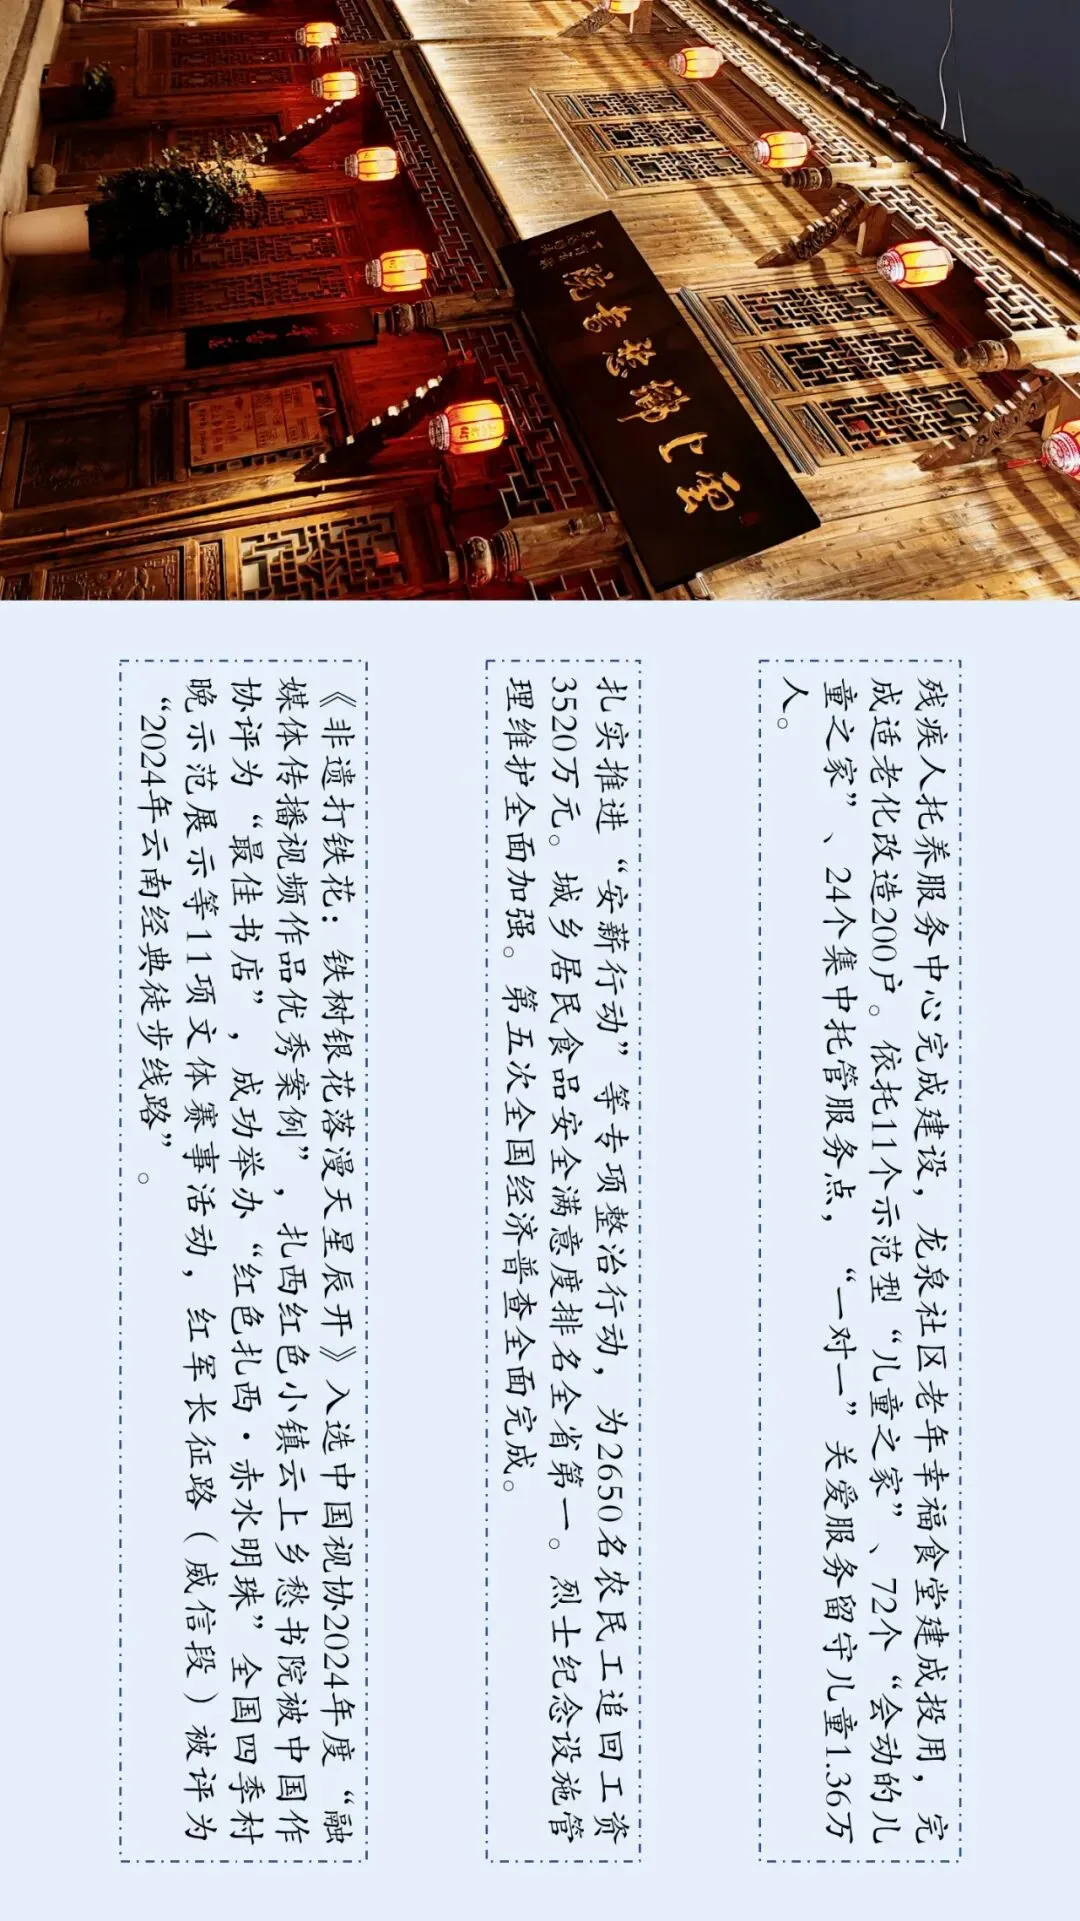 雲上鄉愁書院
残疾人托养服务中心完成建设，龙泉社区老年幸福食堂建成投用，完
成适老化改造200户。依托11个示范型“儿童之家”、72个“会动的儿
童之家”、24个集中托管服务点，“一对一”关爱服务留守儿童1.36万
人。
扎实推进“安薪行动”等专项整治行动，为2650名农民工追回工资
3520万元。城乡居民食品安全满意度排名全省第一。烈士纪念设施管
理维护全面加强。第五次全国经济普查全面完成。
《非遗打铁花：铁树银花落漫天星辰开》入选中国视协2024年度“融
媒体传播视频作品优秀案例”，扎西红色小镇云上乡愁书院被中国作
协评为“最佳书店”，成功举办“红色扎西·赤水明珠”全国四季村
晚示范展示等11项文体赛事活动，红军长征路（威信段）被评为
“2024年云南经典徒步线路”。